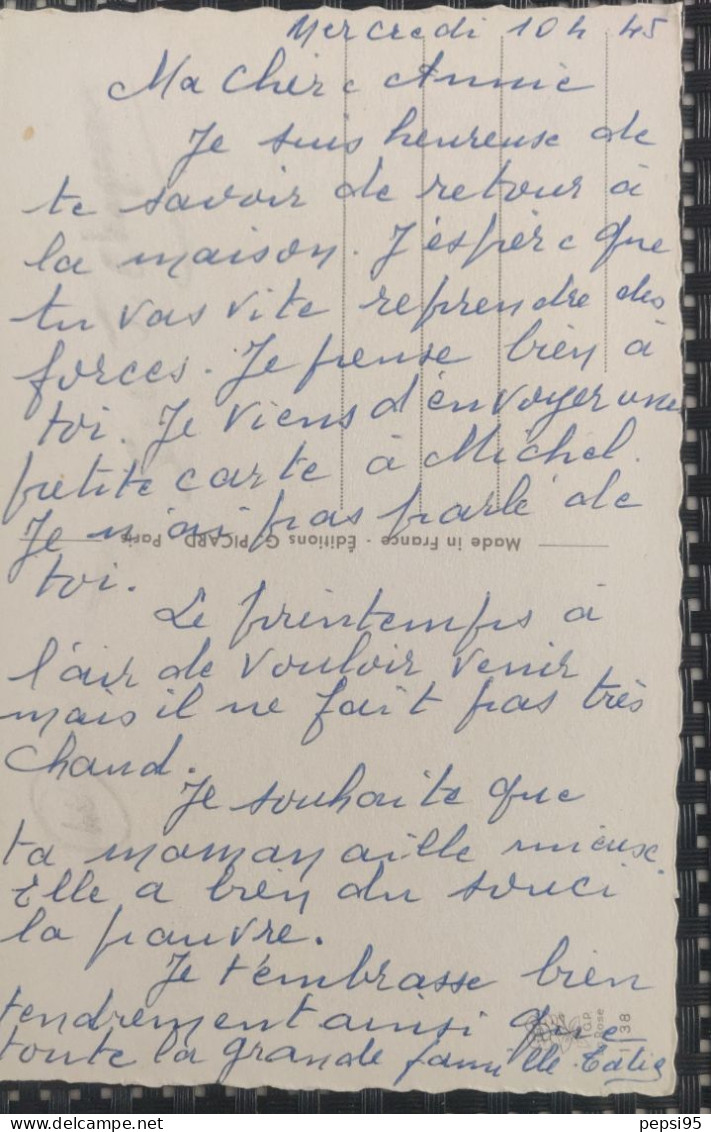 Mercredi 10h 45
Ma Chère Annie
Je suis heureuse de
te savoir de retour à
la maison. J'espère que
tu vas vite reprendre des
forces. Je pense bien à
toi. Je viens d'envoyer une
petite carte à Michel.
Je n'ai pas parlé de
toi.
Made in France - Éditions G. PICARD Paris
Le printemps à
l'air de vouloir venir
mais il ne fait pas très
chaud.
Je souhaite que
ta maman aille mieux.
Elle a bien du souci
la pauvre.
Je t'embrasse bien
tendrement ainsi que
toute la grande famille.
138
pepsi95